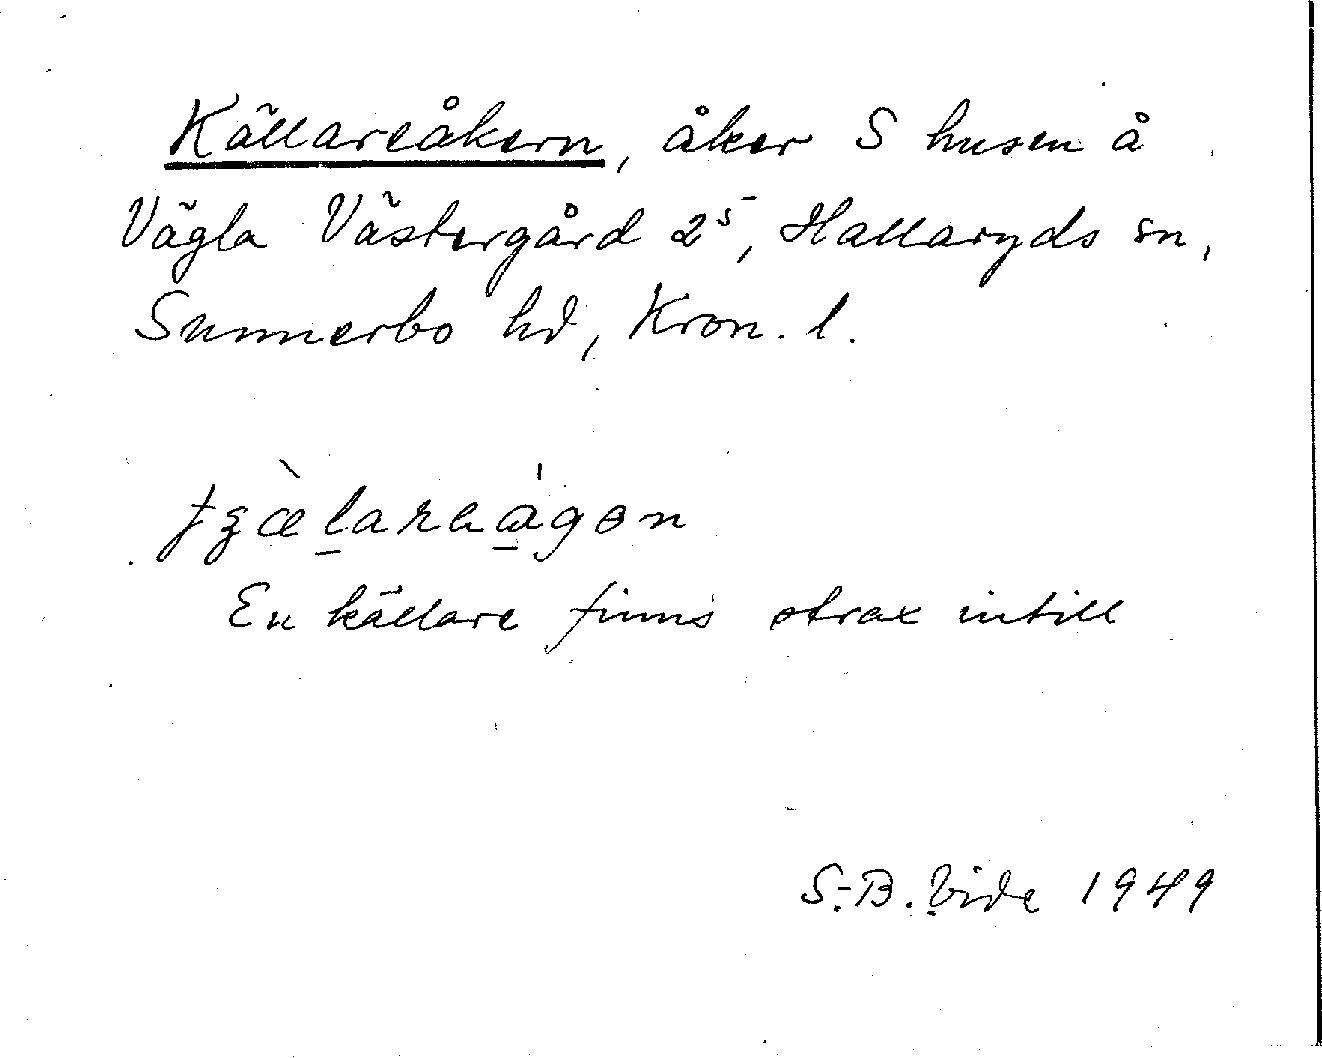 Källareåkern, åker S husen å
Vägla Västergård 2⁵, Hallaryds sn,
Sunnerbo hd, Kron. l.
En källare finns strax intill
S.-B. Vide 1949